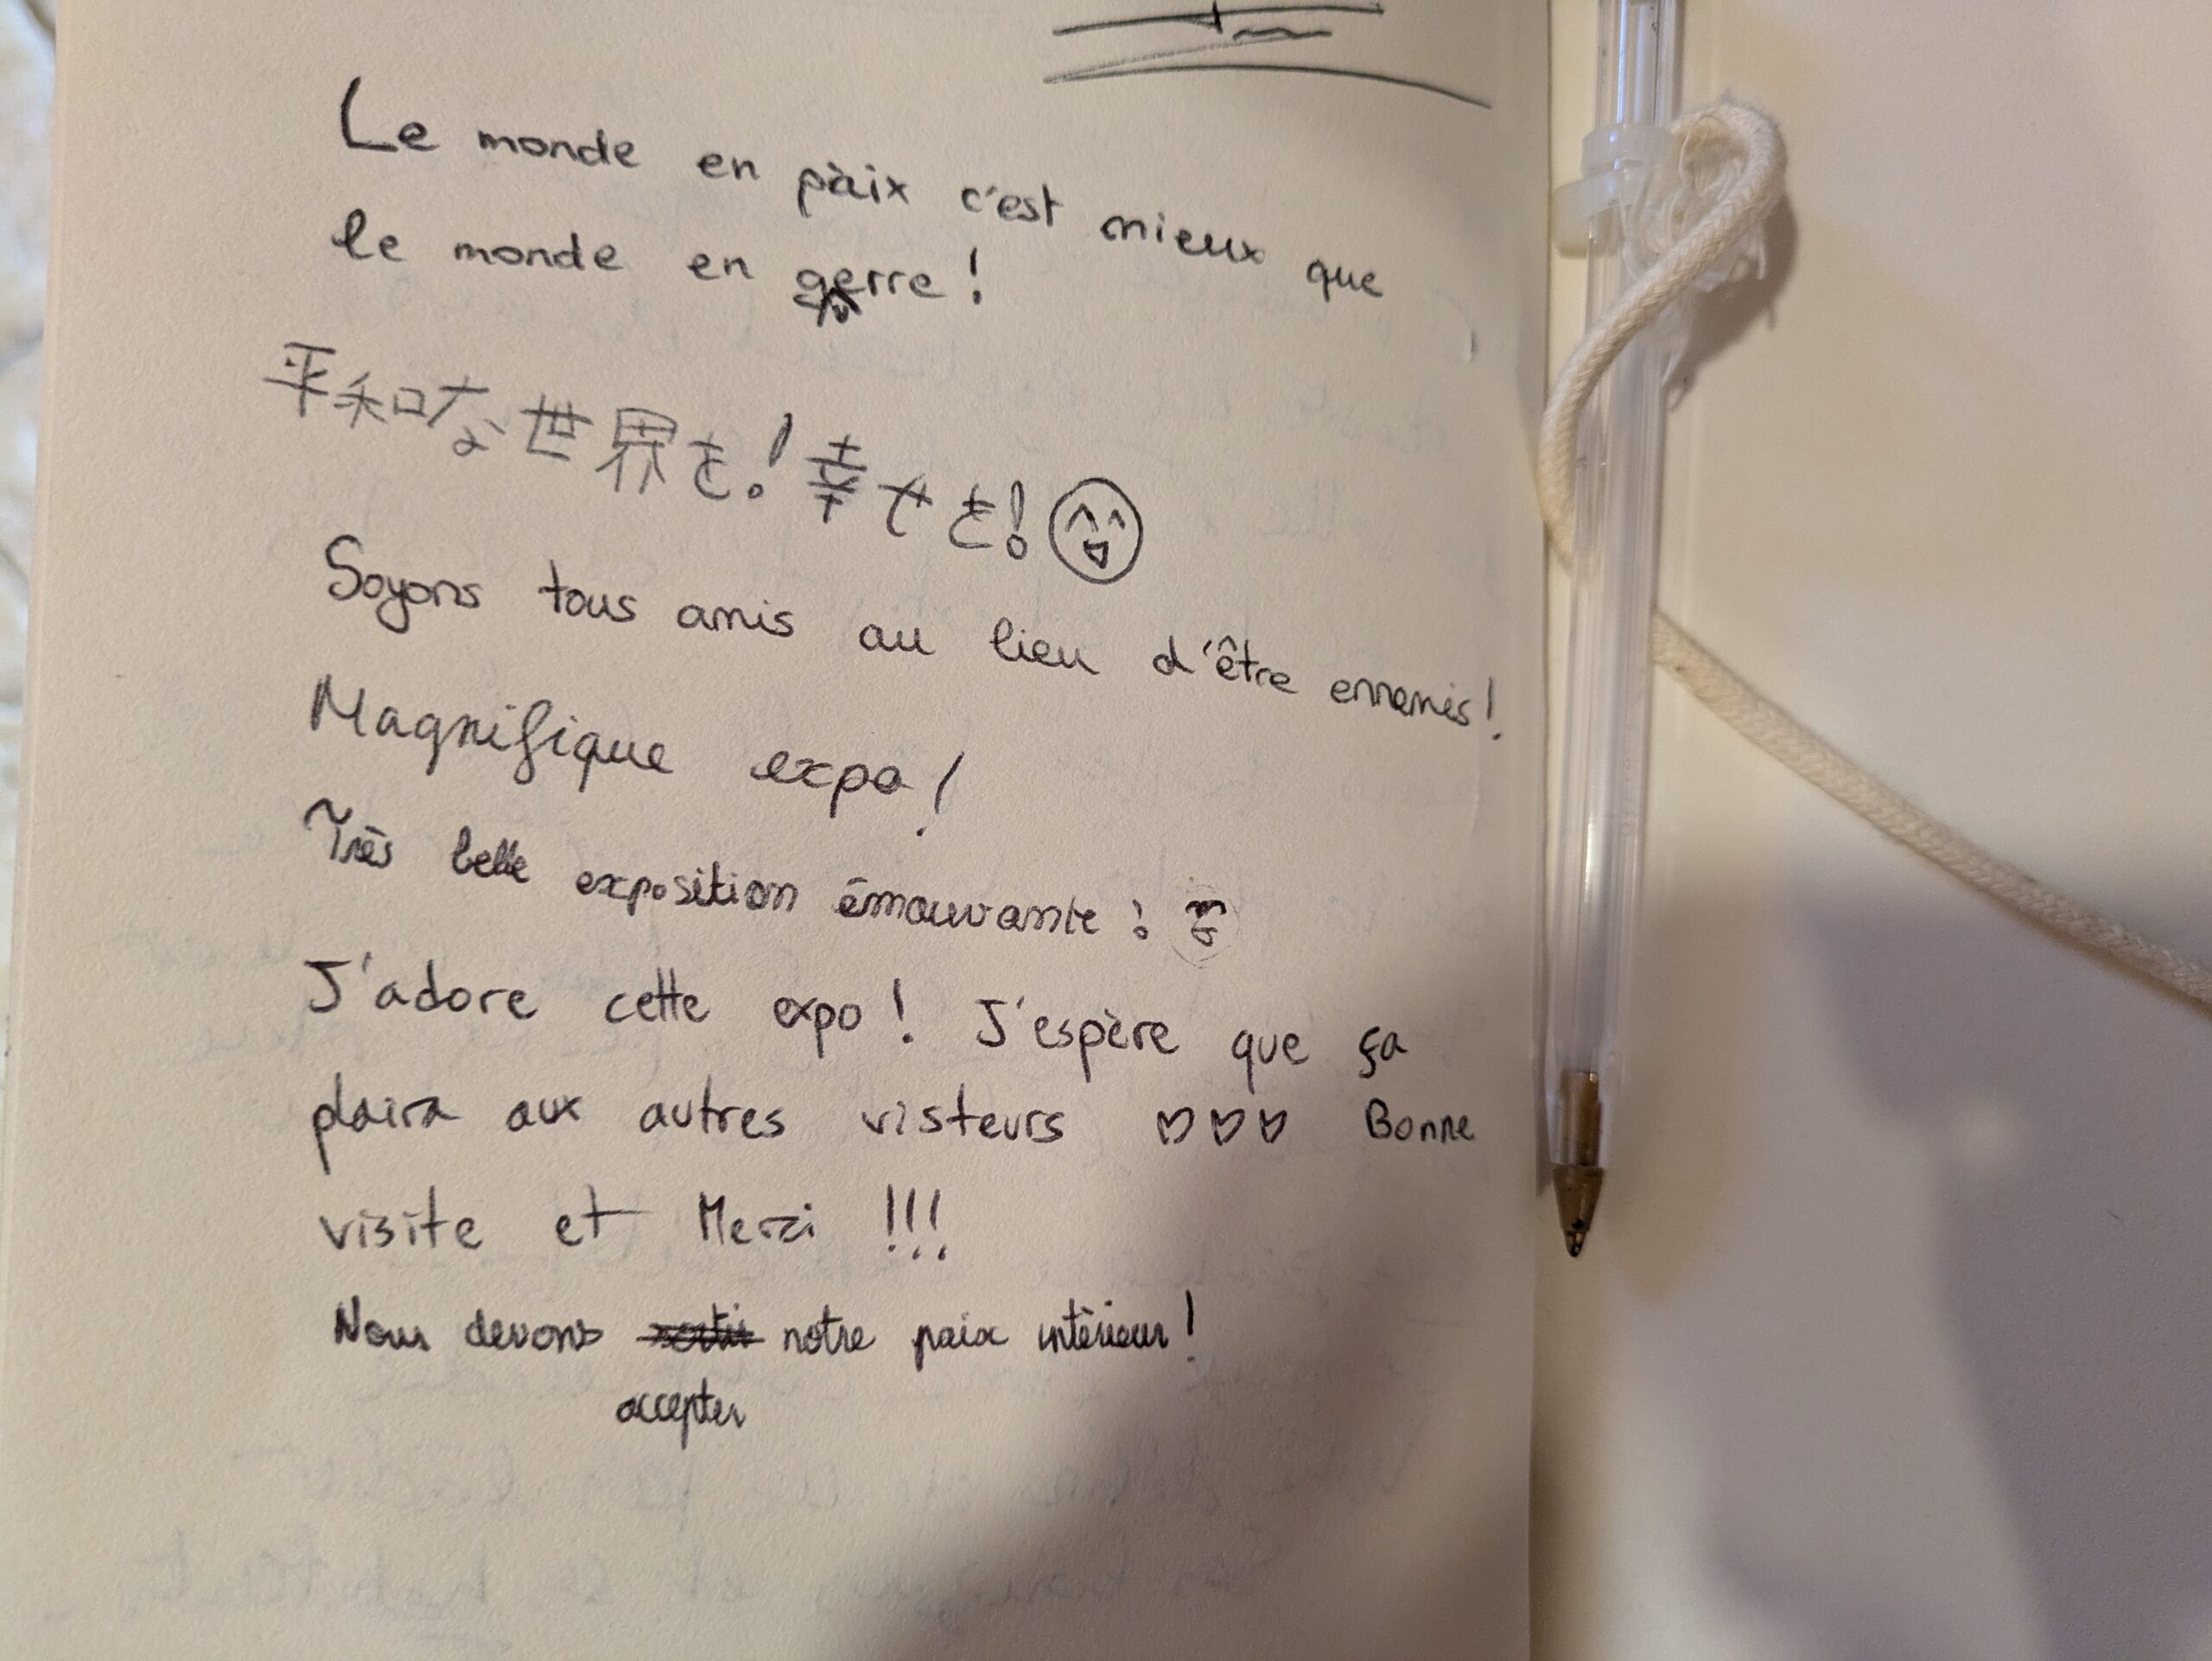 Le monde en paix c'est mieux que
le monde en guerre !
平和な世界を！幸せを！
Soyons tous amis au lieu d'être ennemis !
Magnifique expo !
Très belle exposition émouvante !
J'adore cette expo ! J'espère que ça
plaira aux autres visteurs ♡♡♡ Bonne
visite et Merci !!!
Nous devons notre paix intérieur !
accepter